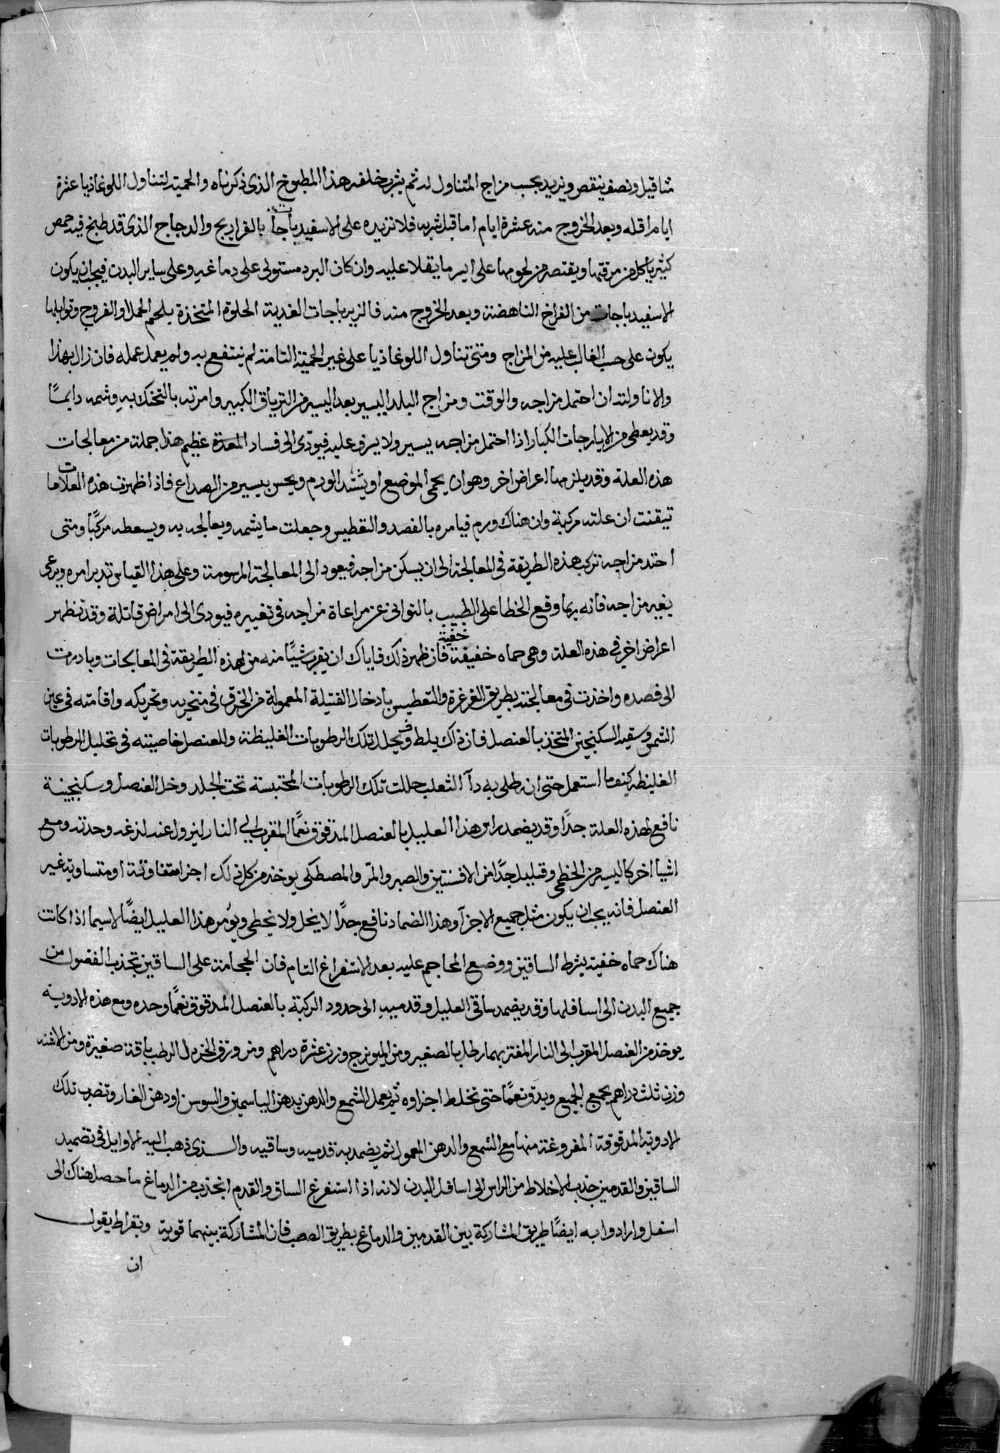 مثاقيل ونصف ينقص ويزيد بحسب مزاج المتناول له ثم يشرب خلفه هذا المطبوخ الذى ذكرناه والحمية لتناول اللوغاذيا عشرة
ايام اقله وبعد الخروج منه عشرة ايام اما قبل شربه فلا تزيده على الاسفيدباجات بالفراريج والدجاج الذى قد طبخ فيه حمص
كثير ياكل من مرقتها ويقتصر من لحومها على ايسر ما يقلا عليه وان كان البرد مستولى على دماغه وعلى ساير البدن فيجب ان يكون
الاسفيدباجات من الفراخ الناهضة وبعد الخروج منه فالزيرباجات الغدية الحلوة المتخذة بلحم الحمل او الفروج وتوابلها
يكون على حسب الغالب عليه من المزاج ومتى تناول اللوغاذيا على غير الحمية التامة لم ينتفع به ولم يعمل عمله فان زال بهذا
والا ناولته ان احتمل مزاجه والوقت ومزاج البلد اليسير بعد اليسير من الترياق الكبير وامرته بالتحنك به وشمه دايمًا
وقد يعطى من الايارجات الكبار اذا احتمل مزاجه يسير ولا يسرف عليه فيودى الى فساد المعدة عظيم هذا جملة من معالجات
هذه العلة وقد يلزمها اعراض اخر وهو ان يحمى الموضع او يشتد الورم ويحس بيسير من الصداع فاذا ظهرت هذه العلامات
تيقنت ان علته مركبة وان هناك ورم فيامره بالفصد والتعطيس وجعلت ما يشمه ويعالجه به ويسعطه مركبًا ومتى
احتد مزاجه ترك هذه الطريقة فى المعالجة الى ان يسكن مزاجه فيعود الى المعالجة المرسومة وعلى هذا القياس تدبر امره ويرعى
بغير مزاجه فانه ربما وقع الخطا على الطبيب بالتوانى عن مراعاة مزاجه فى تغييره فيودى الى امراض قاتلة وقد تظهر
اعراض اخر فى هذه العلة وهى حماه خفيفة خفية فان ظهر ذلك فاياك ان يقرب شيًا منه من لهذه الطريقة فى المعالجات وبادرت
الى فصده واخذت فى معالجته بطريق الغرغرة والتعطيس بادخال الفتيلة المعمولة من الخرق فى منخريه وتحريكه واقامته فى عين
الشمس وسقيه السكنجبين المتخذ بالعنصل فان ذاك يلطف ويحلل تلك الرطوبات الغليظة وللعنصل خاصيته فى تحليل الرطوبات
الغليظه كيفما استعمل حتى ان طلى به دآ الثعلب حللت تلك الرطوبات المحتبسة تحت الجلد وخل العنصل وسكنجبينه
نافع لهذه العلة جدًا وقد يضمد راس هذا العليل بالعنصل المدقوق نعمًا المقرب الى النار ليزول عنه لذعه وحدته ومع
اشيا اخر كاليسير من الخطمى وقليل جدًا من الافسنتين والصبر والمر والمصطكى يوخذ من كل ذلك اجزا متفاوتة او متساوية غير
العنصل فانه يجب ان يكون مثل جميع الاجزآ وهذا الضماد نافع جدًا لا يخل ولا يخطى ويومر هذا العليل ايضًا لاسيما اذا كانت
هناك حماه خفية بشرط الساقين ووضع المحاجم عليه بعد الاستفراغ التام فان الحجامة على الساقين تجذب الفضول من
جميع البدن الى اسافلها وقد يضمد ساقى العليل وقدميه الى حدود الركبة بالعنصل المدقوق نعمًا وحده ومع هذه الادوية
يوخذ من العنصل المقرب الى النار المفتر بها رطل بالصغير ومن الميويزج وزن عشرة دراهم ومن ورق الخردل الرطب باقة صغيرة ومن الاشنه
وزن ثلث دراهم يجمع الجميع ويدق نعمًا حتى تختلط اجزاوه ثم يعمل الشمع والدهن بدهن الياسمين والسوس او دهن الغار وتضرب تلك
الادوية المدقوقة المفروغة منها مع الشمع والدهن المعمول ثم يضمد به قدميه وساقيه والذى ذهب اليه الاوايل فى تضميد
الساقين والقدمين جذب الاخلاط من الراس الى اسافل البدن لانه اذا استفرغ الساق والقدم انجذب من الدماغ ما حصل هناك الى
اسفل وارادوا به ايضًا طريق المشاركة بين القدمين والدماغ بطريق العصب فان المشاركة بينهما قوية وبقراط يقول
ان